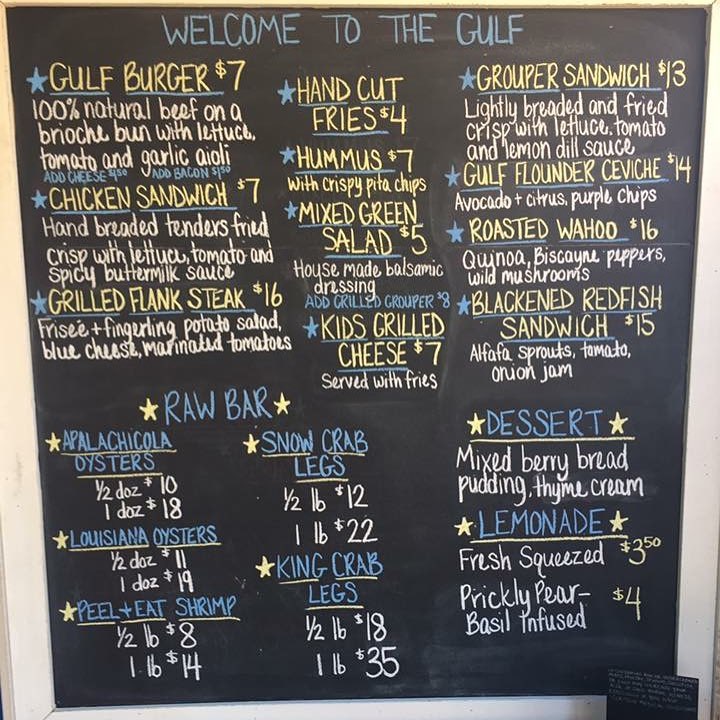 WELCOME TO THE GULF
GULF BURGER $7
100% natural beef on a
brioche bun with lettuce,
tomato and garlic aioli
ADD CHEESE $1.50 ADD BACON $1.50
CHICKEN SANDWICH $7
Hand breaded tenders fried
crisp with lettuce, tomato and
spicy buttermilk sauce
GRILLED FLANK STEAK $16
Friseé + fingerling potato salad,
blue cheese, marinated tomatoes
HAND CUT
FRIES $4
HUMMUS $7
with crispy pita chips
MIXED GREEN
SALAD $5
House made balsamic
dressing
ADD GRILLED GROUPER $8
KIDS GRILLED
CHEESE $7
Served with fries
GROUPER SANDWICH $13
Lightly breaded and fried
crisp with lettuce, tomato
and lemon dill sauce
GULF FLOUNDER CEVICHE $14
Avocado + citrus, purple chips
ROASTED WAHOO $16
Quinoa, Biscayne peppers,
wild mushrooms
BLACKENED REDFISH
SANDWICH $15
Alfafa sprouts, tomato,
onion jam
RAW BAR
APALACHICOLA
OYSTERS
1/2 doz $10
1 doz $18
LOUISIANA OYSTERS
1/2 doz $11
1 doz $19
PEEL + EAT SHRIMP
1/2 lb $8
1 lb $14
SNOW CRAB
LEGS
1/2 lb $12
1 lb $22
KING CRAB
LEGS
1/2 lb $18
1 lb $35
DESSERT
Mixed berry bread
pudding, thyme cream
LEMONADE
Fresh Squeezed $3.50
Prickly Pear- $4
Basil Infused